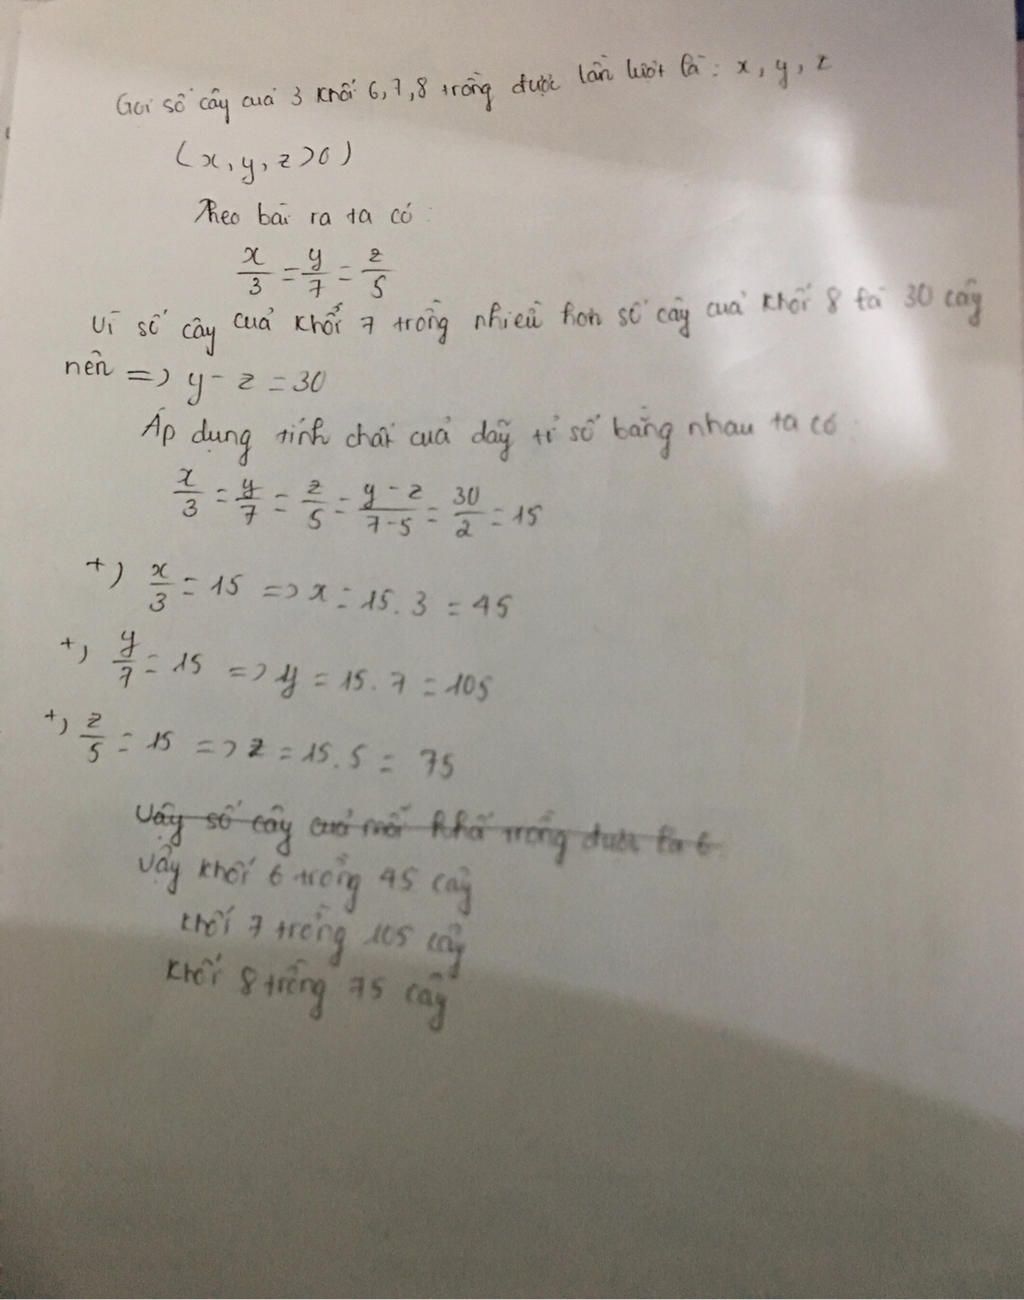 Gọi số cây của 3 khối 6,7,8 trồng được lần lượt là: x, y, z
(x, y, z > 0)
Theo bài ra ta có:
x/3 = y/7 = z/5
Vì số cây của khối 7 trồng nhiều hơn số cây của khối 8 là 30 cây
nên => y - z = 30
Áp dụng tính chất của dãy tỉ số bằng nhau ta có:
x/3 = y/7 = z/5 = y - z/7-5 = 30/2 = 15
+) x/3 = 15 => x = 15. 3 = 45
+) y/7 = 15 => y = 15. 7 = 105
+) z/5 = 15 => z = 15. 5 = 75
Vậy số cây của mỗi khối trồng được là 6
Vậy khối 6 trồng 45 cây
khối 7 trồng 105 cây
khối 8 trồng 75 cây